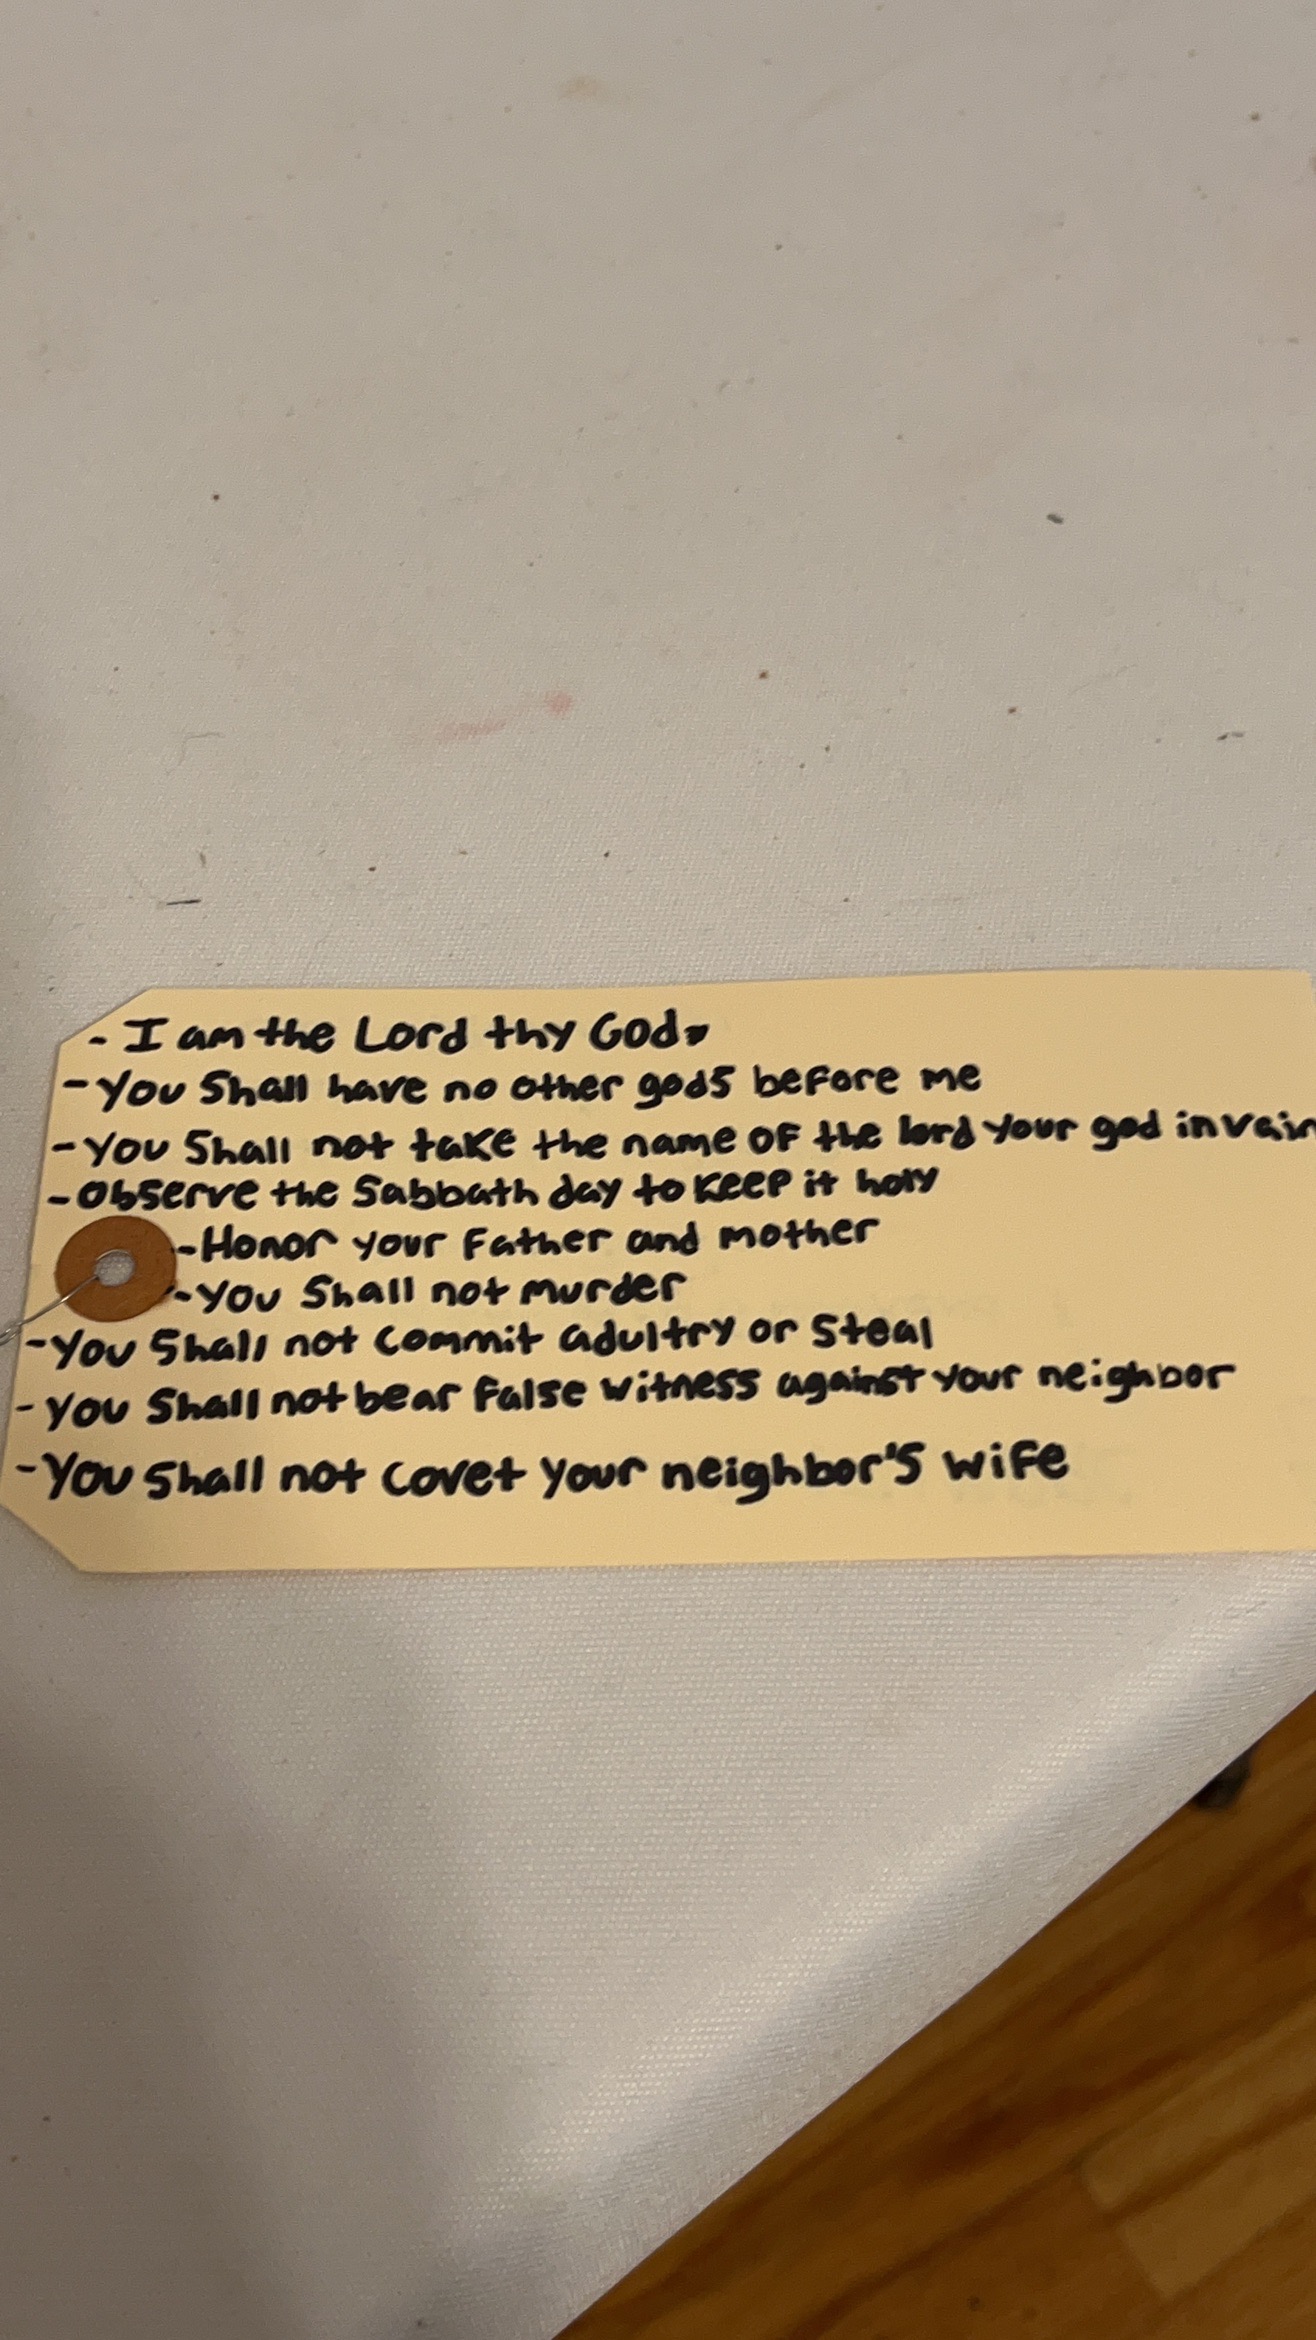 - I am the Lord thy God.
- You Shall have no other gods before me
- You Shall not take the name of the lord your god in vain
- Observe the Sabbath day to keep it holy
- Honor your Father and mother
- You Shall not murder
- You Shall not commit adultry or Steal
- You Shall not bear False witness against your neighbor
- You Shall not covet your neighbor's wife